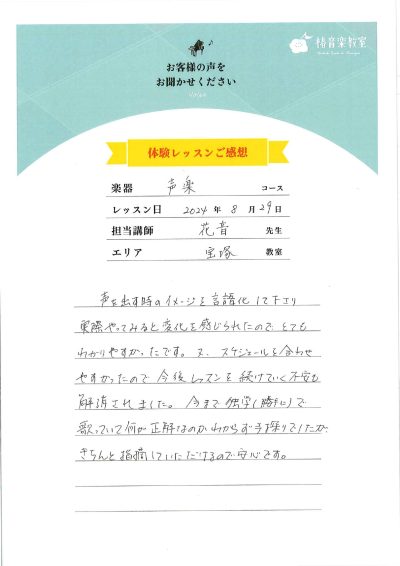 椿音楽教室
お客様の声を
お聞かせください
Voice
体験レッスンご感想
楽器 声楽 コース
レッスン日 2024 年 8 月 29 日
担当講師 花音 先生
エリア 宝塚 教室
声を出す時のイメージを言語化して下さり
実際やってみると変化を感じられたので とても
わかりやすかったです。又、スケジュールを合わせ
やすかったので 今後レッスンを続けていく不安も
解消されました。今まで独学(勝手に)で
歌っていて何が正解なのかわからず手探りでしたが、
きちんと指摘していただけるので安心です。